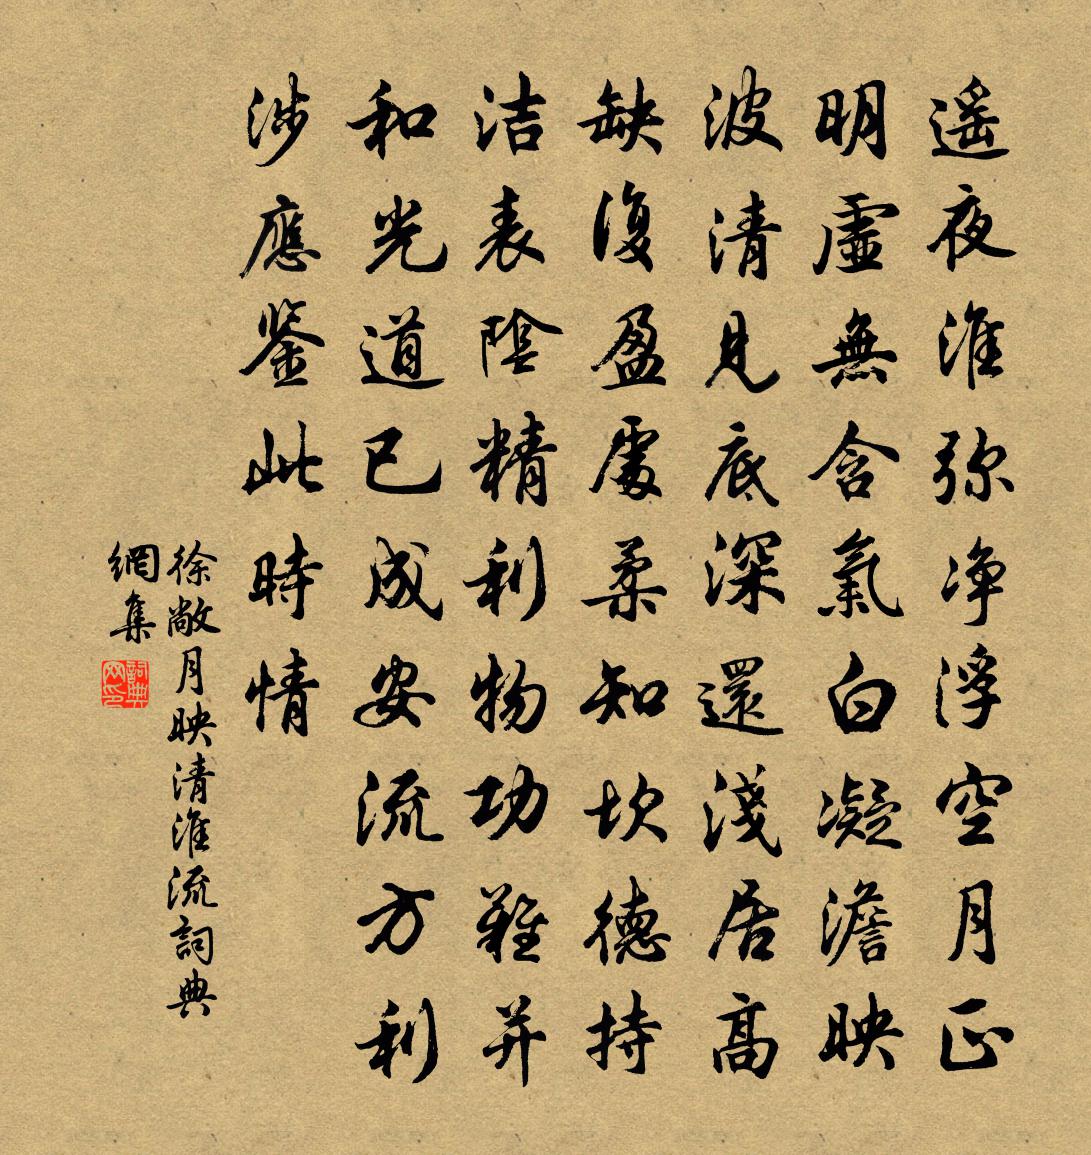 遥夜淮弥净浮空月正
明虛無含氣白凝澹映
波清見底深還淺居高
缺復盈處柔知坎德持
洁表陰精利物功難并
和光道已成安流方利
涉應鉴此時情
徐敞月映清淮流詞典
網集
詞典网印